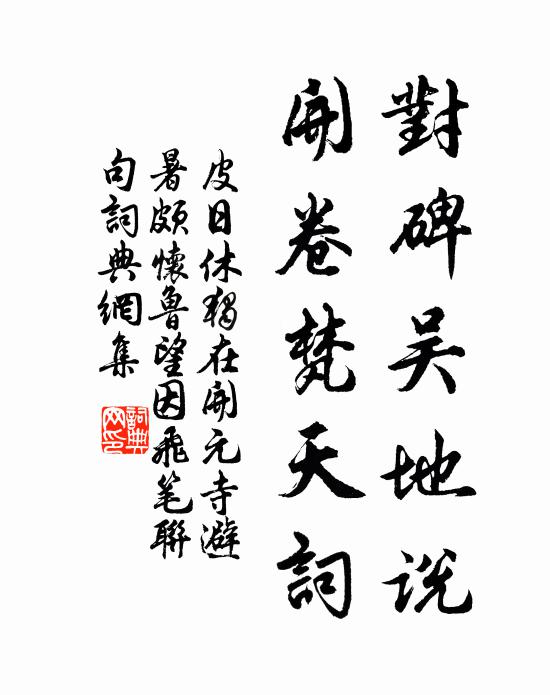 對碑吴地说
開卷梵天詞
皮日休獨在開元寺避
暑頗懷魯望因飛笔聯
句詞典網集
詞典
网印